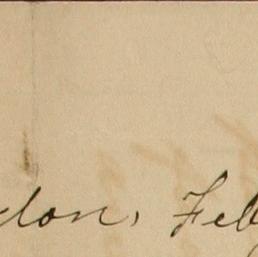 don, Feb